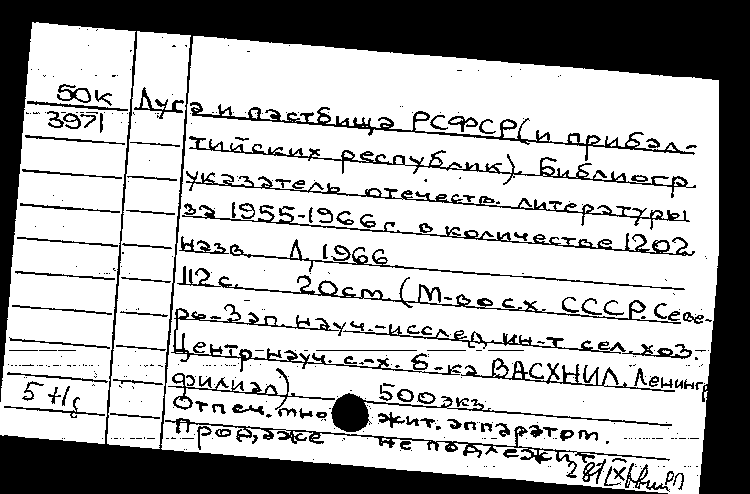 50к
3971
Луга и пастбища РСФСР (и прибал-
тийских республик). Библиогр.
указатель отечеств. литературы
за 1955-1966 г. в количестве 1202
назв. Л., 1966
112 с. 20см (М-во с.х. СССР. Севе-
ро-Зап. науч.-исслед. ин-т сел. хоз.
Центр. науч. с.-х. б-ка ВАСХНИЛ. Ленингр
филиал). 500 экз.
Отпеч. множит. аппаратом.
Продаже не подлежит.